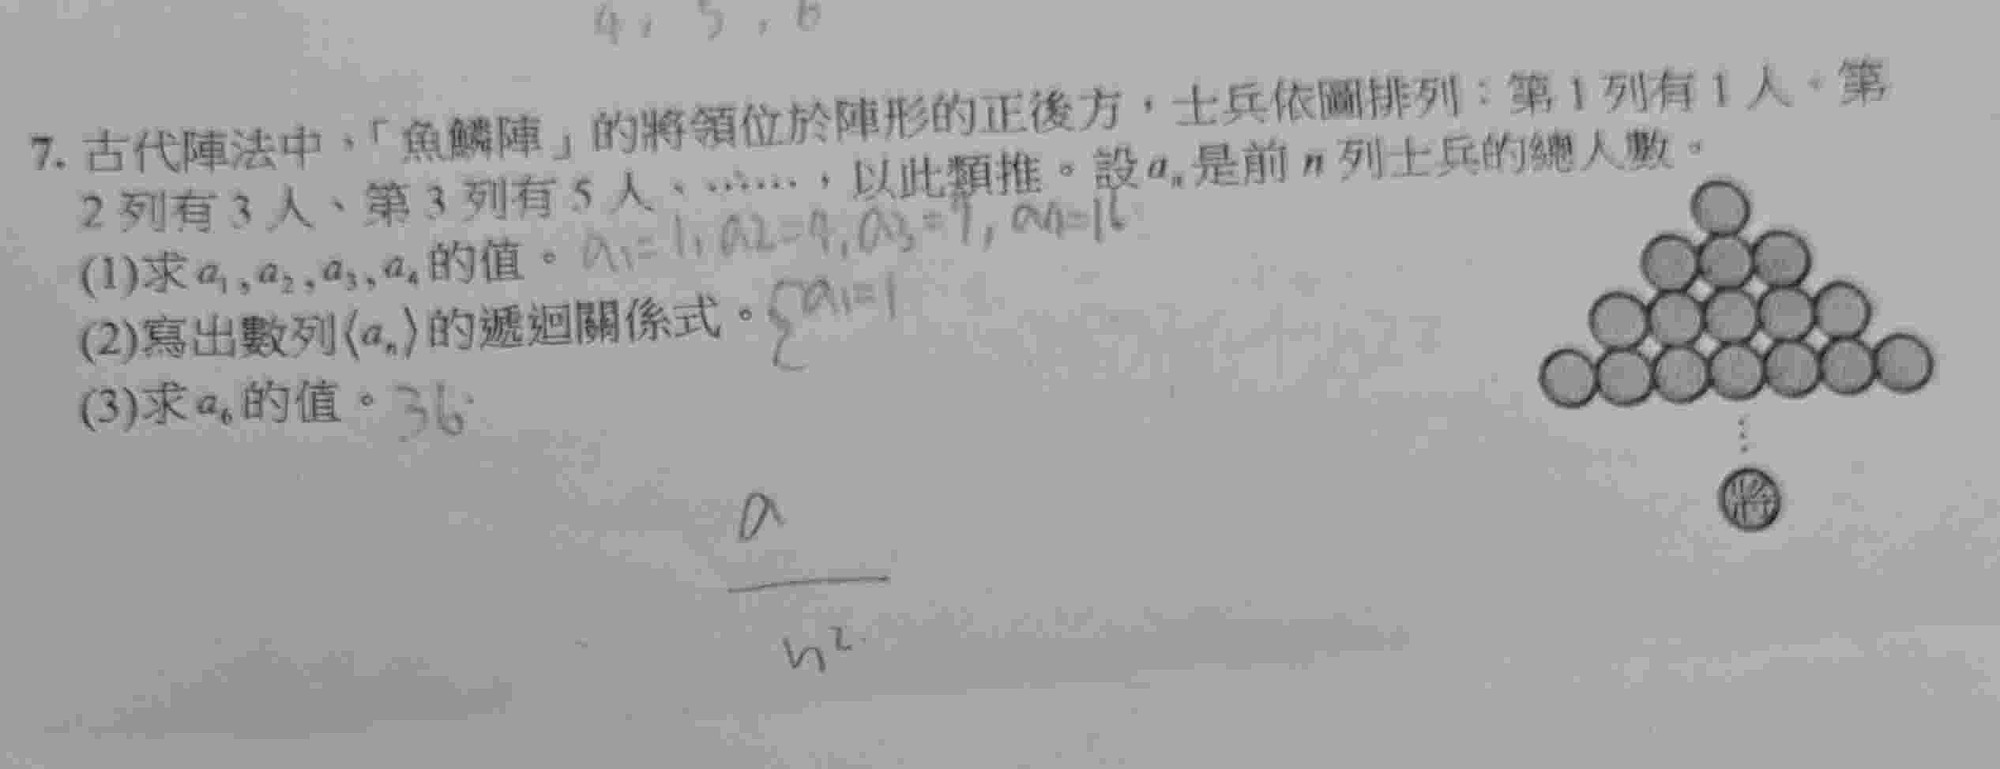 4, 5, 6
7. 古代陣法中,「魚鱗陣」的將領位於陣形的正後方,士兵依圖排列:第1列有1人、第
2列有3人、第3列有5人、……,以此類推。設aₙ是前n列士兵的總人數。
(1)求a₁,a₂,a₃,a₄的值。a1=1, a2=4, a3=9, a4=16
(2)寫出數列⟨aₙ⟩的遞迴關係式。{a1=1
(3)求a₆的值。36
將
a
n²